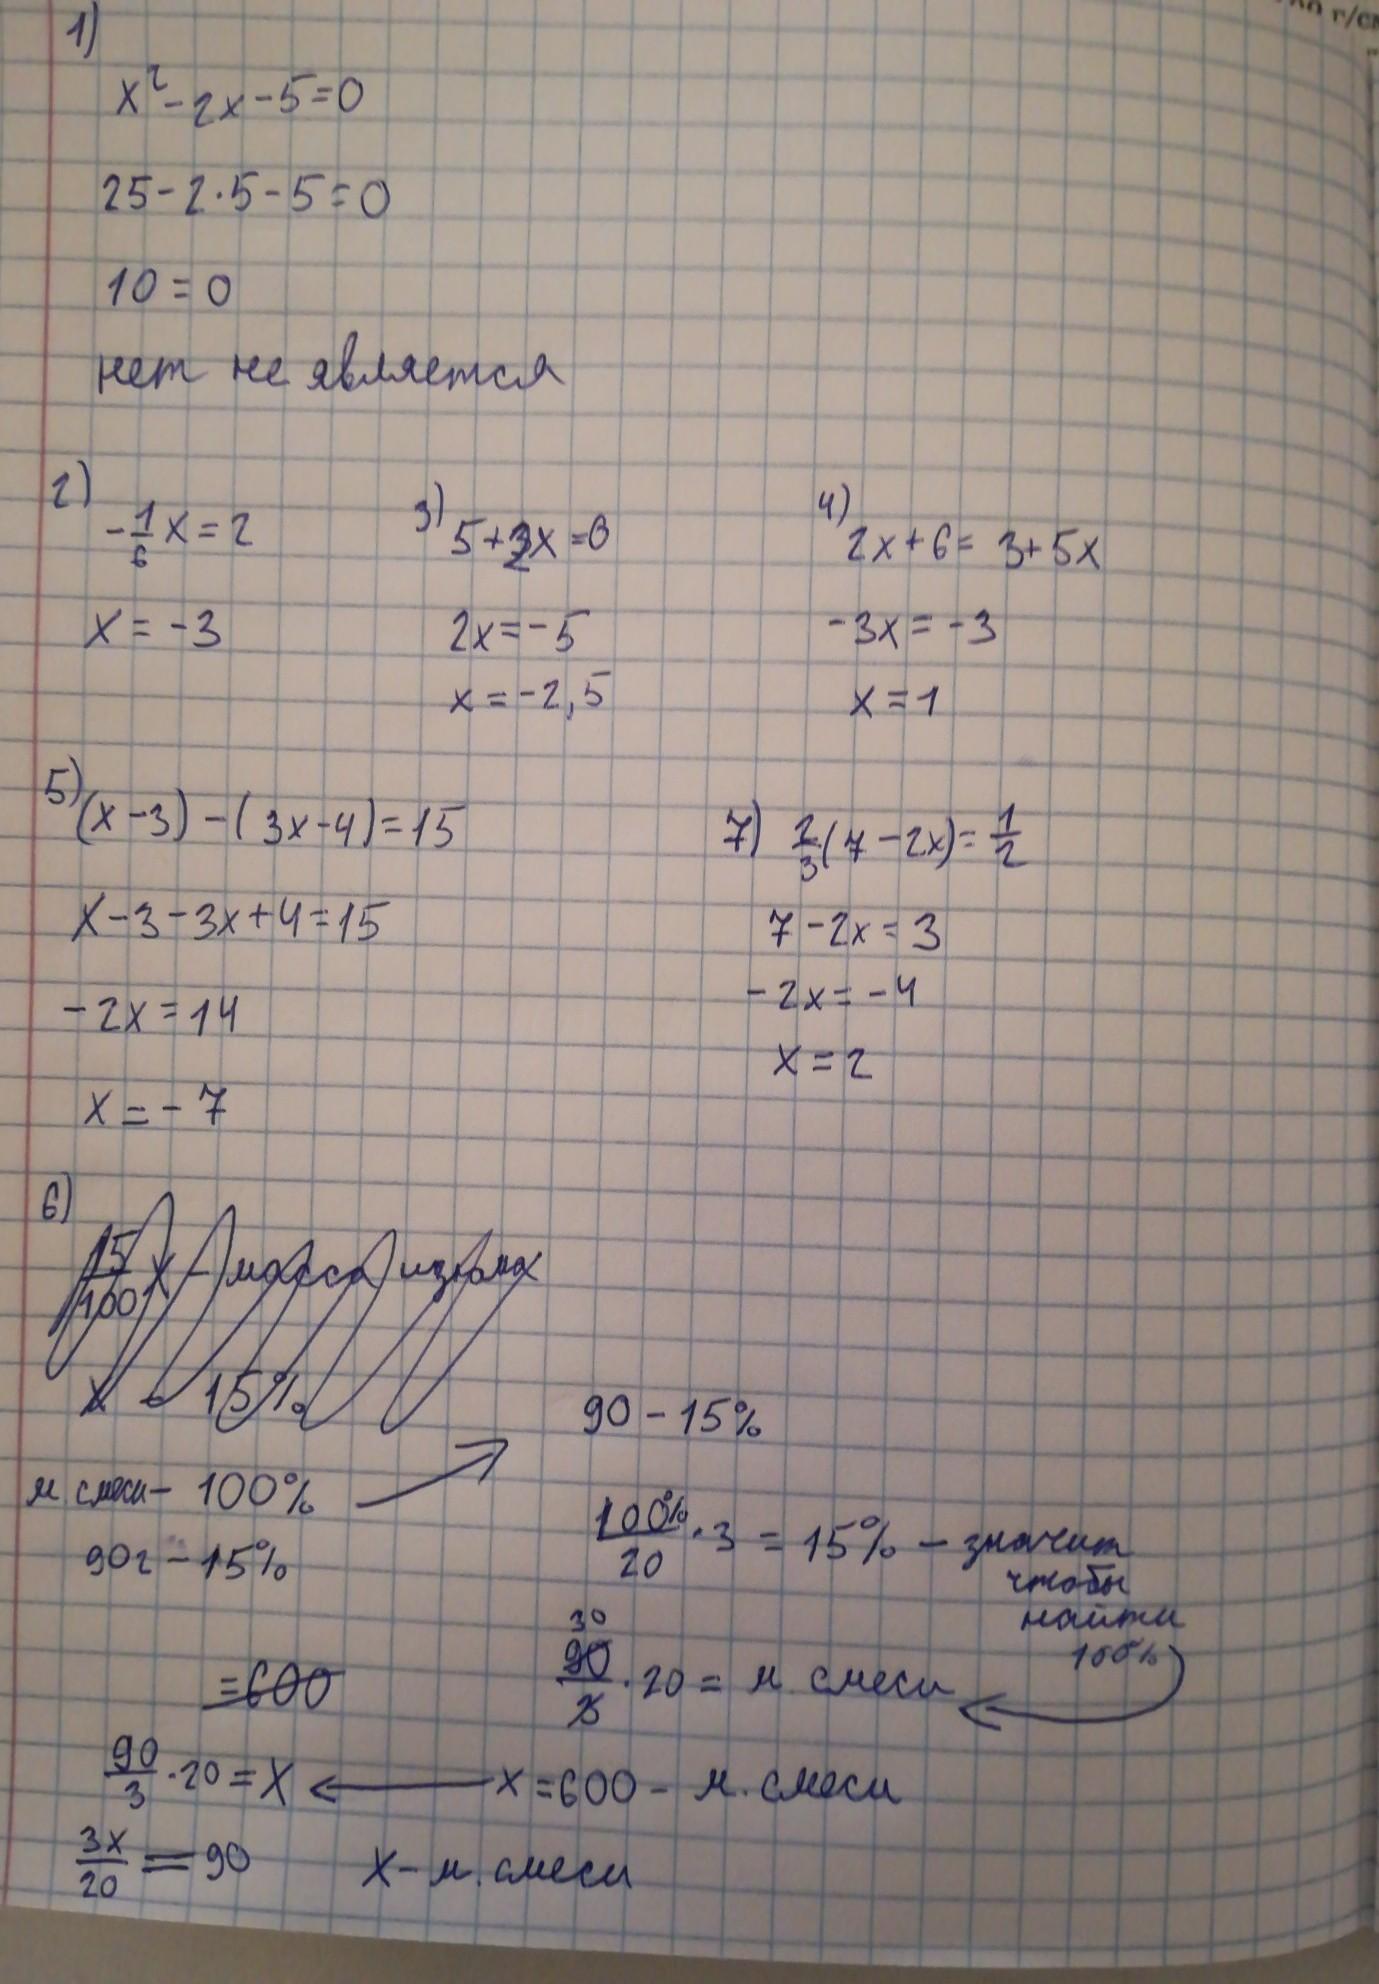 1)
x² - 2x - 5 = 0
25 - 2·5 - 5 = 0
10 = 0
нет не является
2)
-1/6 x = 2
x = -3
3)
5 + 2x = 0
2x = -5
x = -2,5
4)
2x + 6 = 3 + 5x
-3x = -3
x = 1
5)
(x - 3) - (3x - 4) = 15
x - 3 - 3x + 4 = 15
-2x = 14
x = -7
7) 2/3 (7 - 2x) = 1/2
7 - 2x = 3
-2x = -4
x = 2
6)
15/100 x - масса изюма
x - 15%
м смеси - 100%
90г - 15%
= 600
90/3 · 20 = x
3x/20 = 90
90 - 15%
100%/20 · 3 = 15% - значит
чтобы
найти
100%
30
90/3 · 20 = м. смеси
x = 600 - м. смеси
x - м. смеси
г/см